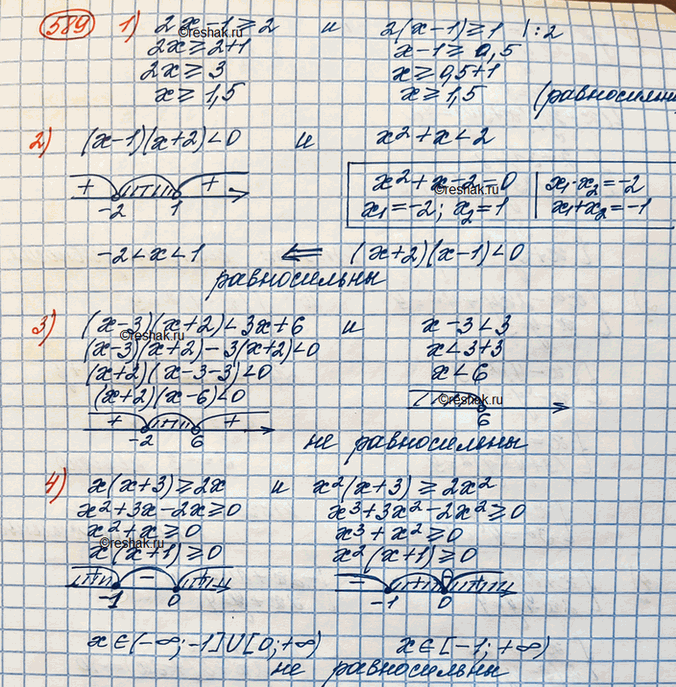 589 1) 2x-1≥2 и 2(x-1)≥1 |:2
2x≥2+1 x-1≥0,5
2x≥3 x≥0,5+1
x≥1,5 x≥1,5 (равносильны
©reshak.ru
2) (x-1)(x+2)<0 и x²+x<2
+ + x²+x-2=0 x₁·x₂=-2
-2 1 x₁=-2; x₂=1 x₁+x₂=-1
©reshak.ru
-2<x<1 ⇐ (x+2)(x-1)<0
равносильны
3) (x-3)(x+2)<3x+6 и x-3<3
©reshak.ru
(x-3)(x+2)-3(x+2)<0 x<3+3
(x+2)(x-3-3)<0 x<6
(x+2)(x-6)<0
©reshak.ru
+ + 6
-2 6
не равносильны
4) x(x+3)≥2x и x²(x+3)≥2x²
x²+3x-2x≥0 x³+3x²-2x²≥0
x²+x≥0 x³+x²≥0
©reshak.ru
x(x+1)≥0 x²(x+1)≥0
+ - + - + +
-1 0 -1 0
x∈(-∞;-1]∪[0;+∞) x∈[-1;+∞)
не равносильны